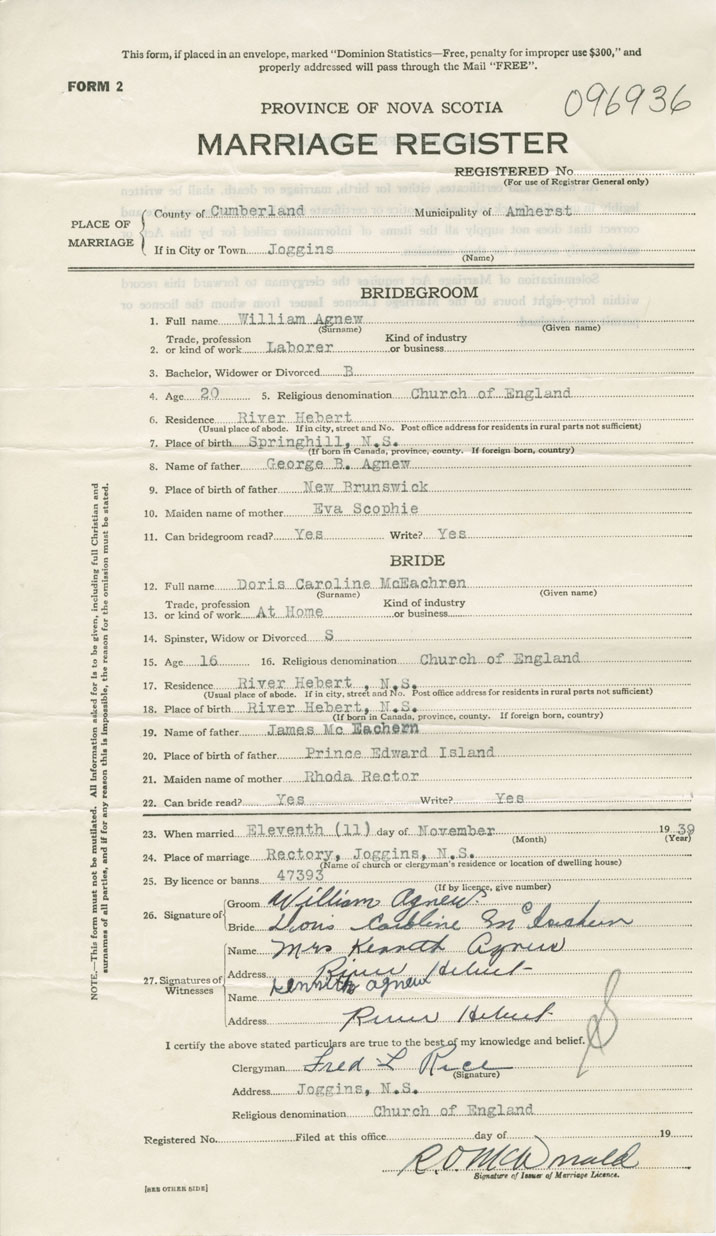 This form, if placed in an envelope, marked "Dominion Statistics—Free, penalty for improper use $300," and
properly addressed will pass through the Mail "FREE".
FORM 2
096936
PROVINCE OF NOVA SCOTIA
MARRIAGE REGISTER
REGISTERED No.
(For use of Registrar General only)
PLACE OF MARRIAGE
County of Cumberland Municipality of Amherst
If in City or Town Joggins
(Name)
BRIDEGROOM
1. Full name William Agnew
(Surname) (Given name)
Trade, profession Kind of industry
2. or kind of work Laborer or business
3. Bachelor, Widower or Divorced B
4. Age 20 5. Religious denomination Church of England
6. Residence River Hebert
(Usual place of abode. If in city, street and No. Post office address for residents in rural parts not sufficient)
7. Place of birth Springhill, N.S.
(If born in Canada, province, county. If foreign born, country)
8. Name of father George B. Agnew
9. Place of birth of father New Brunswick
10. Maiden name of mother Eva Scophie
11. Can bridegroom read? Yes Write? Yes
BRIDE
12. Full name Doris Caroline McEachren
(Surname) (Given name)
Trade, profession Kind of industry
13. or kind of work At Home or business
14. Spinster, Widow or Divorced S
15. Age 16 16. Religious denomination Church of England
17. Residence River Hebert, N.S.
(Usual place of abode. If in city, street and No. Post office address for residents in rural parts not sufficient)
18. Place of birth River Hebert, N.S.
(If born in Canada, province, county. If foreign born, country)
19. Name of father James Mc Eachern
20. Place of birth of father Prince Edward Island
21. Maiden name of mother Rhoda Rector
22. Can bride read? Yes Write? Yes
23. When married Eleventh (11) day of November 1939
(Month) (Year)
24. Place of marriage Rectory, Joggins, N.S.
(Name of church or clergyman's residence or location of dwelling house)
25. By licence or banns 47393
(If by licence, give number)
26. Signature of
Groom William Agnew
Bride Doris Carbline McEachern
27. Signatures of Witnesses
Name Mrs Kenneth Agnew
Address River Hebert
Name Kennith Agnew
Address River Hebert
I certify the above stated particulars are true to the best of my knowledge and belief.
Clergyman Fred L Rice
(Signature)
Address Joggins, N.S.
Religious denomination Church of England
Registered No. Filed at this office day of 19
R.O. McDonald
Signature of Issuer of Marriage Licence.
[SEE OTHER SIDE]
NOTE.—This form must not be mutilated. All Information asked for is to be given, including full Christian and
surnames of all parties, and if for any reason this is impossible, the reason for the omission must be stated.